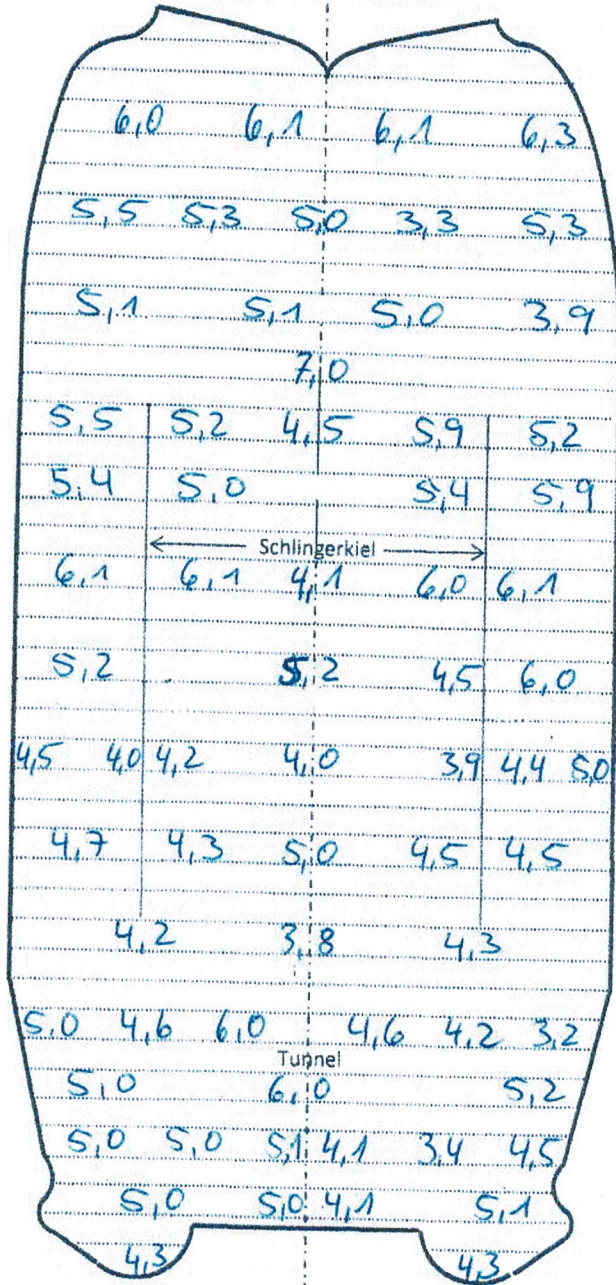 6,0 6,1 6,1 6,3
5,5 5,3 5,0 3,3 5,3
5,1 5,1 5,0 3,9
7,0
5,5 5,2 4,5 5,9 5,2
5,4 5,0 5,4 5,9
Schlingerkiel
6,1 6,1 4,1 6,0 6,1
5,2 5,2 4,5 6,0
4,5 4,0 4,2 4,0 3,9 4,4 5,0
4,7 4,3 5,0 4,5 4,5
4,2 3,8 4,3
5,0 4,6 6,0 4,6 4,2 3,2
Tunnel
5,0 6,0 5,2
5,0 5,0 5,1 4,1 3,4 4,5
5,0 5,0 4,1 5,1
4,3 4,3